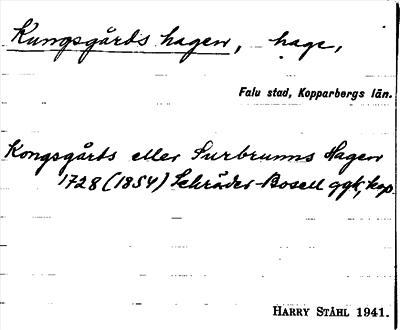 Kungsgårds hagen, hage,
Falu stad, Kopparbergs län.
Kongsgårds eller Surbrunns Hagen
1728 (1854) Schräder-Bosell ggk, kop
HARRY STÅHL 1941.